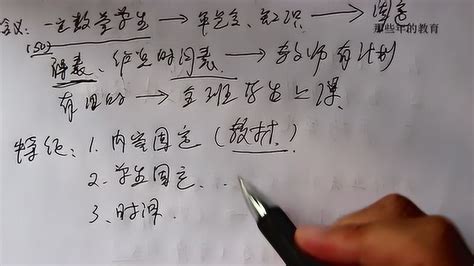 含义: 一定数量学生 → 年龄、知识 → 固定
那些年的教育
(50)
课表、作息时间表 → 教师有计划
有目的 → 全班学生上课
特征: 1. 内容固定 (教材)
2. 学生固定、
3. 时间